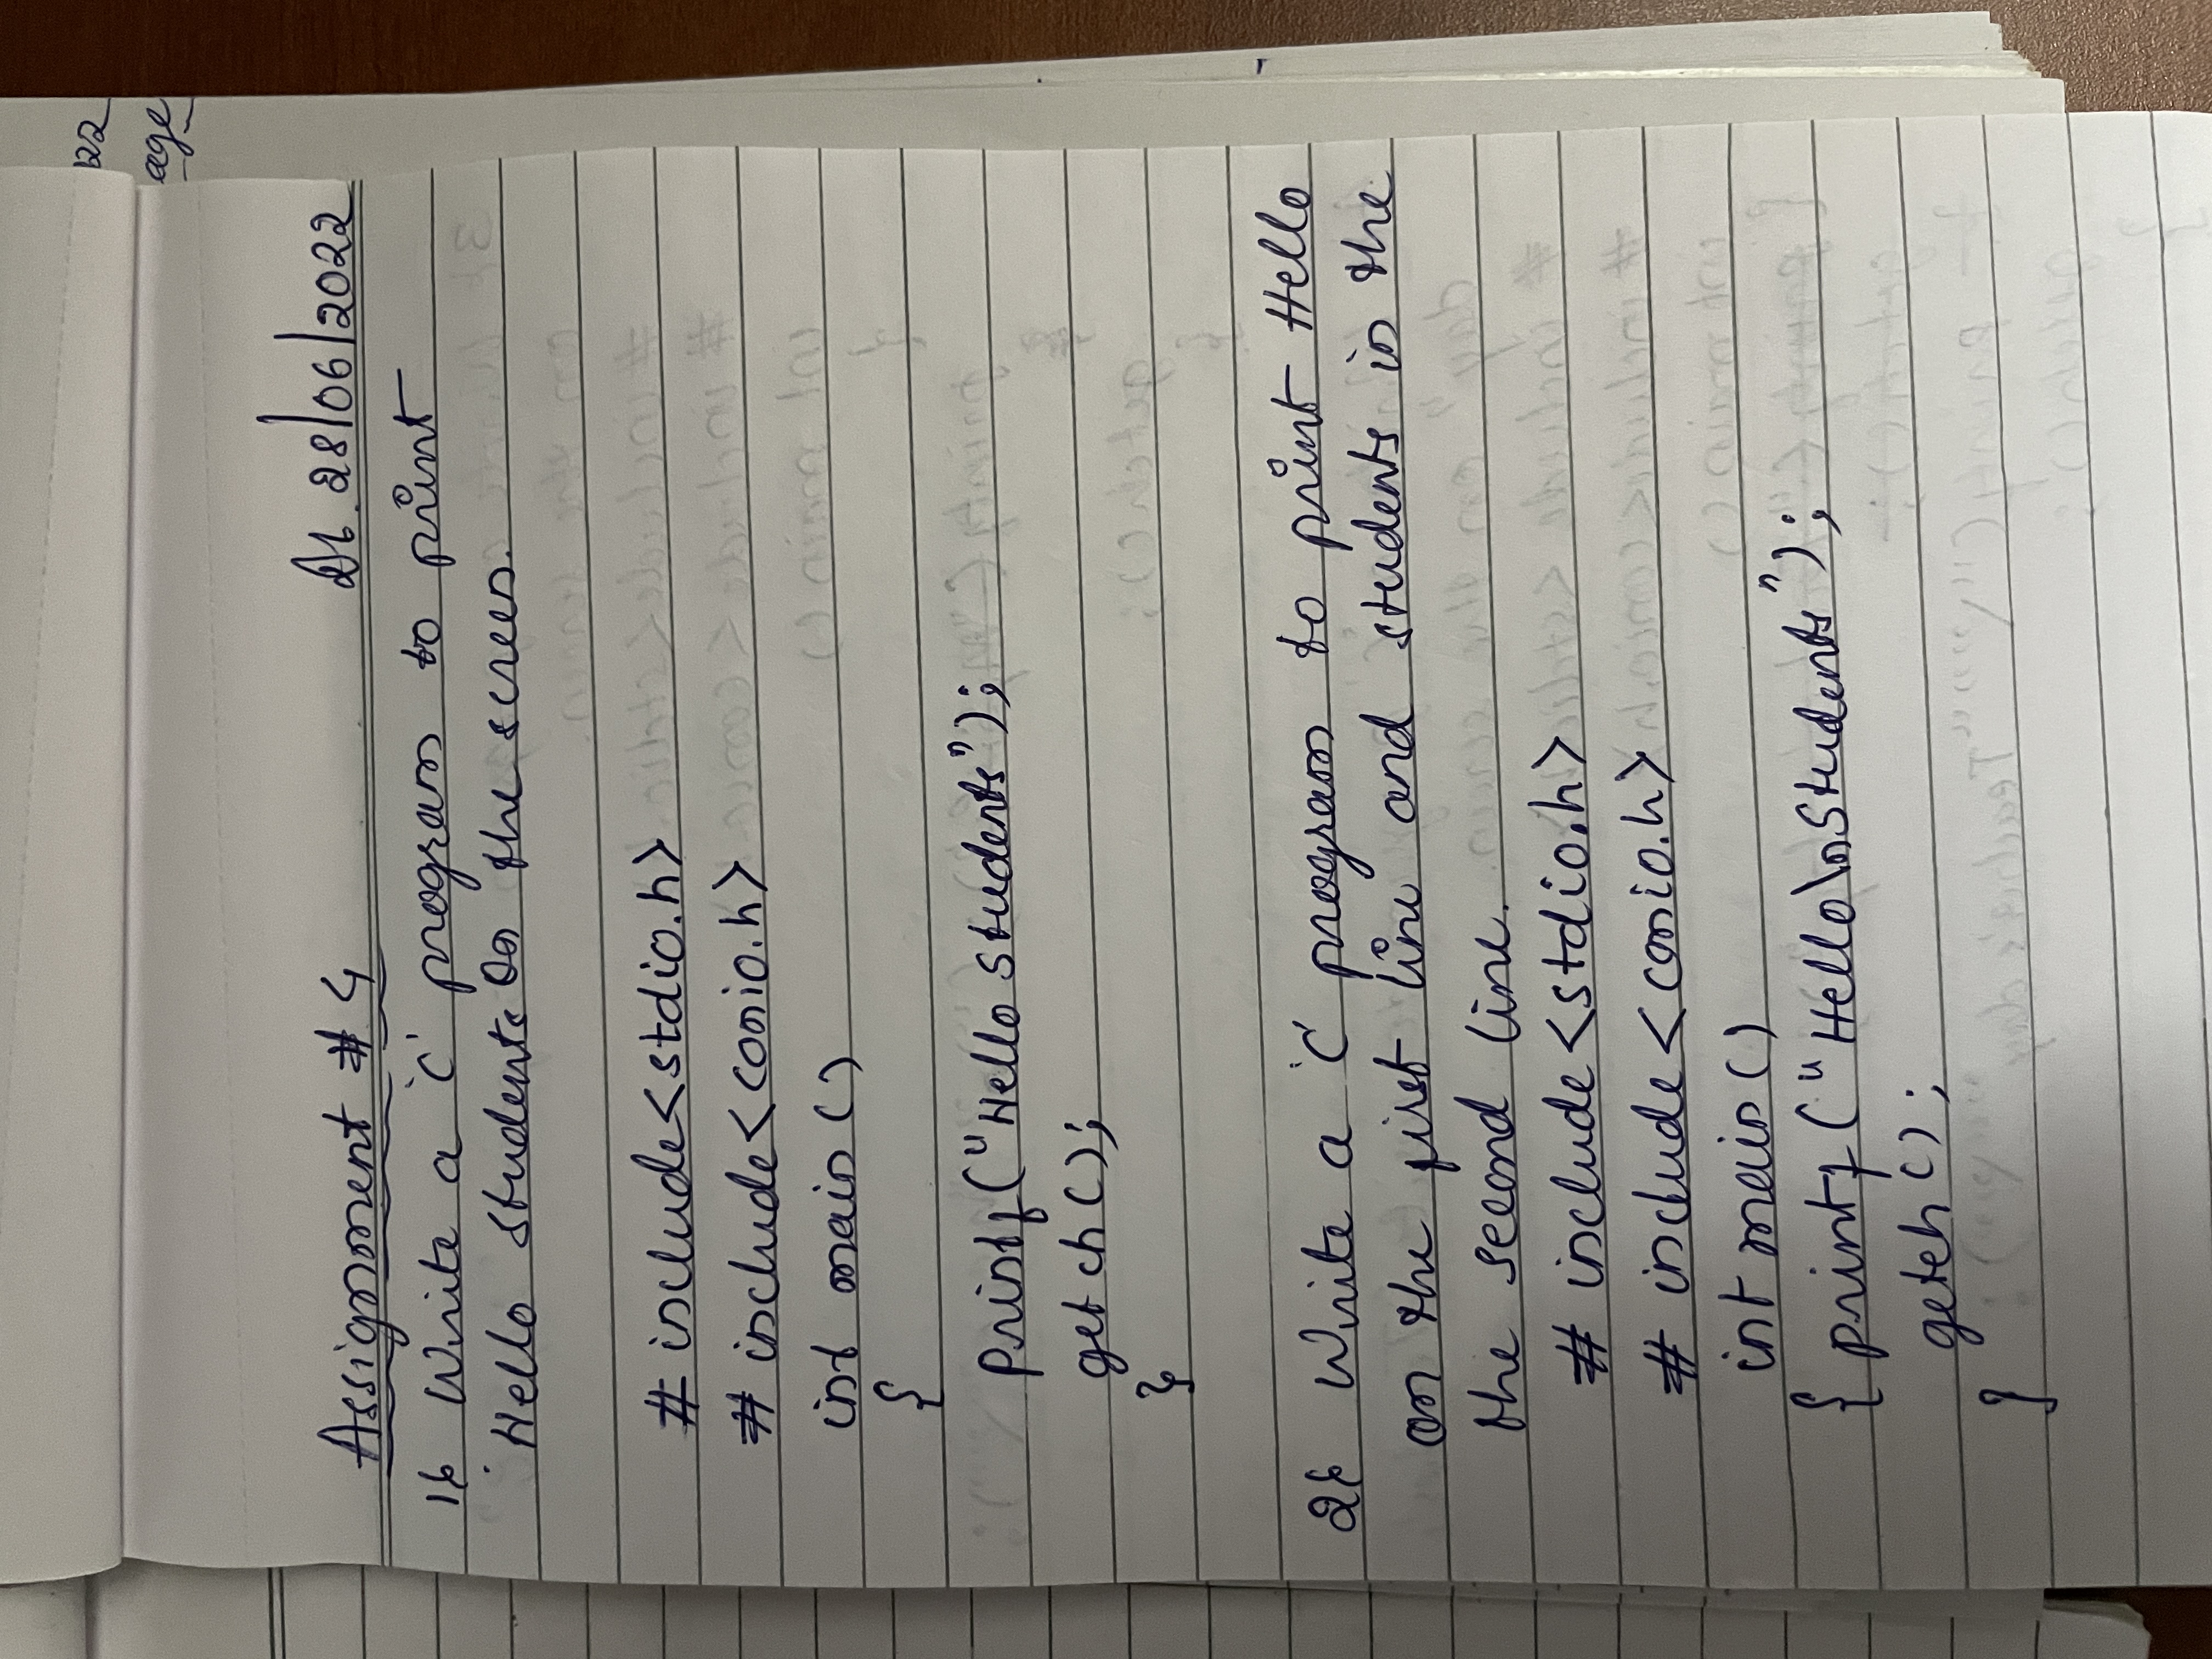 22
age
Assignment # 4 Dt. 28/06/2022
1) Write a 'C' program to print
Hello Students On the screen.
# include<stdio.h>
# include<conio.h>
int main ()
{
printf("Hello Students");
getch();
}
2) Write a 'C' program to print Hello
on the first line and students in the
the second line.
# include<stdio.h>
# include<conio.h>
int main ()
{ printf ("Hello\nStudents");
getch();
}